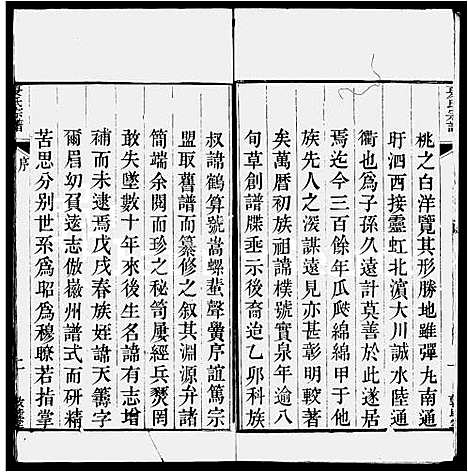 桃之白洋覽其形勝地雖彈丸南通
盱泗西接靈虹北濱大川誠水陸通
衢也爲子孫久遠計莫善於此遂居
焉迄今三百餘年瓜瓞綿綿甲于他
族先人之深謀遠見亦甚彰明較著
矣萬曆初族祖諱樸號實泉年逾八
旬草創譜牒垂示後裔迨乙卯科族
叔諱鶴算號嵩螺蜚聲黌序誼篤宗
盟取舊譜而纂修之叙其淵源弁諸
簡端余閱而珍之秘笥屢經兵燹罔
敢失墜數十年來後生名諱有志增
補而未逮焉戊戌春族姪諱天籌字
爾眉幼負遠志倣徽州譜式而研精
苦思分別世系爲昭爲穆瞭若指掌
氏宗譜
序